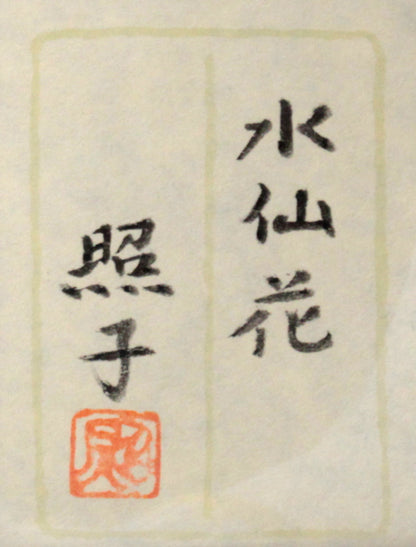 水仙花
照子